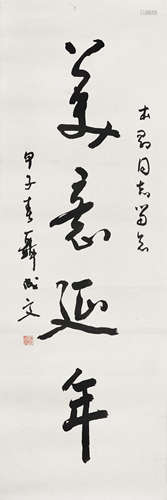 本君同志留念
美意延年
甲子春聂成文